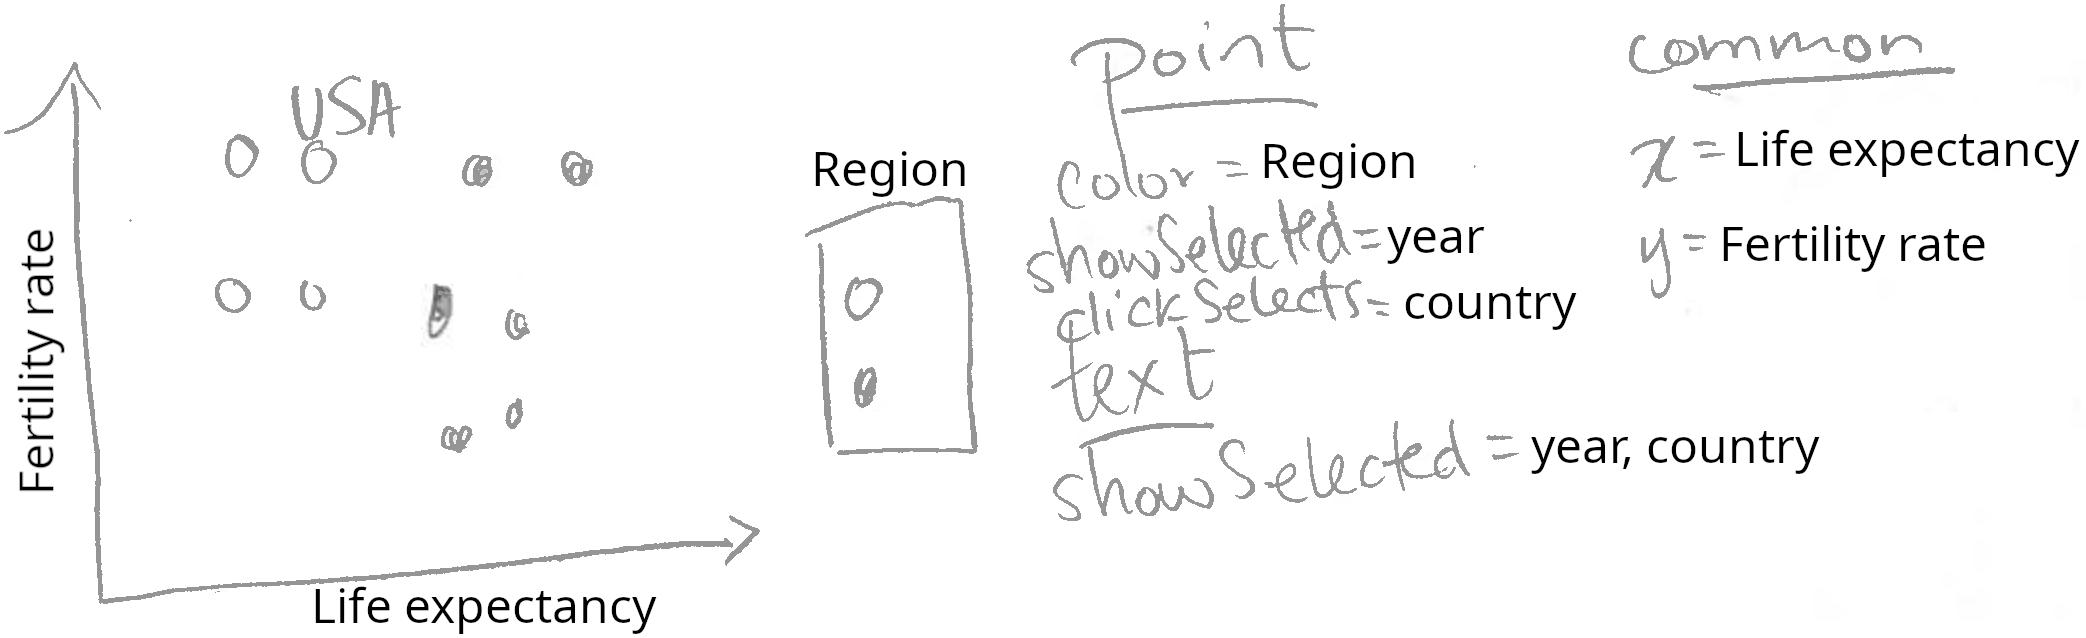 USA
Fertility rate
Life expectancy
Region
point
color = Region
showSelected = year
clickSelects = country
text
showSelected = year, country
common
x = Life expectancy
y = Fertility rate